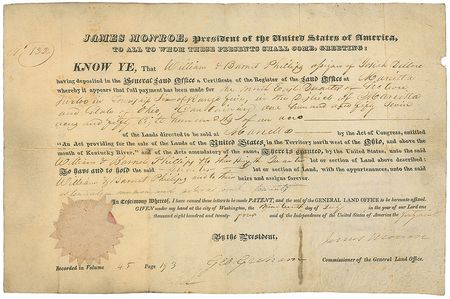 No 132
JAMES MONROE, President of the United States of America,
TO ALL TO WHOM THESE PRESENTS SHALL COME, GREETING:
KNOW YE, That William & Barnet Phillips
having deposited in the General Land Office a Certificate of the Register of the Land Office at Marietta
whereby it appears that full payment has been made for the North East Quarter of Section
twelve in Township of Range in the District of Marietta
and State of Ohio one hundred and fifty seven
acres and fifty hundredths of an acre
of the Lands directed to be sold at Marietta by the Act of Congress, entitled
"An Act providing for the sale of the Lands of the United States in the territory north west of the Ohio, and above the
mouth of Kentucky River," and of the acts amendatory of the same, There is granted, by the United States, unto the said
William & Barnet Phillips the quarter lot or section of land above described:
To have and to hold the said quarter lot or section of land, with the appurtenances, unto the said
William & Barnet Phillips their heirs and assigns forever.
In Testimony Whereof, I have caused these letters to be made PATENT, and the seal of the GENERAL LAND OFFICE to be hereunto affixed.
GIVEN under my hand at the city of Washington, the day of in the year of our Lord one
thousand eight hundred and twenty four and of the Independence of the United States of America the forty
By the President,
James Monroe
Geo: Graham Commissioner of the General Land Office.
Recorded in Volume 45 Page 193